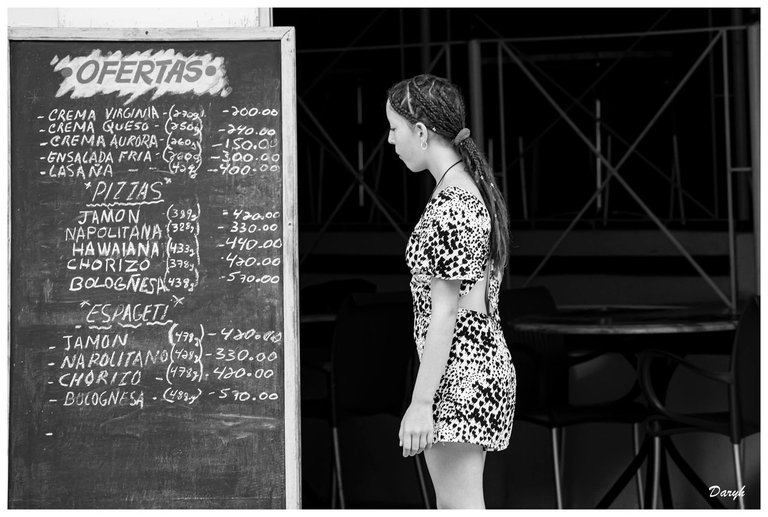 OFERTAS
- CREMA VIRGINIA - (270g) - 200.00
- CREMA QUESO - (250g) - 240.00
- CREMA AURORA - (260g) - 150.00
- ENSALADA FRIA - (200g) - 300.00
- LASAÑA - 400.00
"PIZZAS"
JAMON (389g) - 420.00
NAPOLITANA (328g) - 330.00
HAWAIANA (433g) - 440.00
CHORIZO (378g) - 420.00
BOLOGÑESA (438g) - 570.00
"ESPAGETI"
- JAMON (478g) - 420.00
- NAPOLITANO (428g) - 330.00
- CHORIZO - (478g) - 420.00
- BOLOGNESA - (488g) - 570.00
Daryh